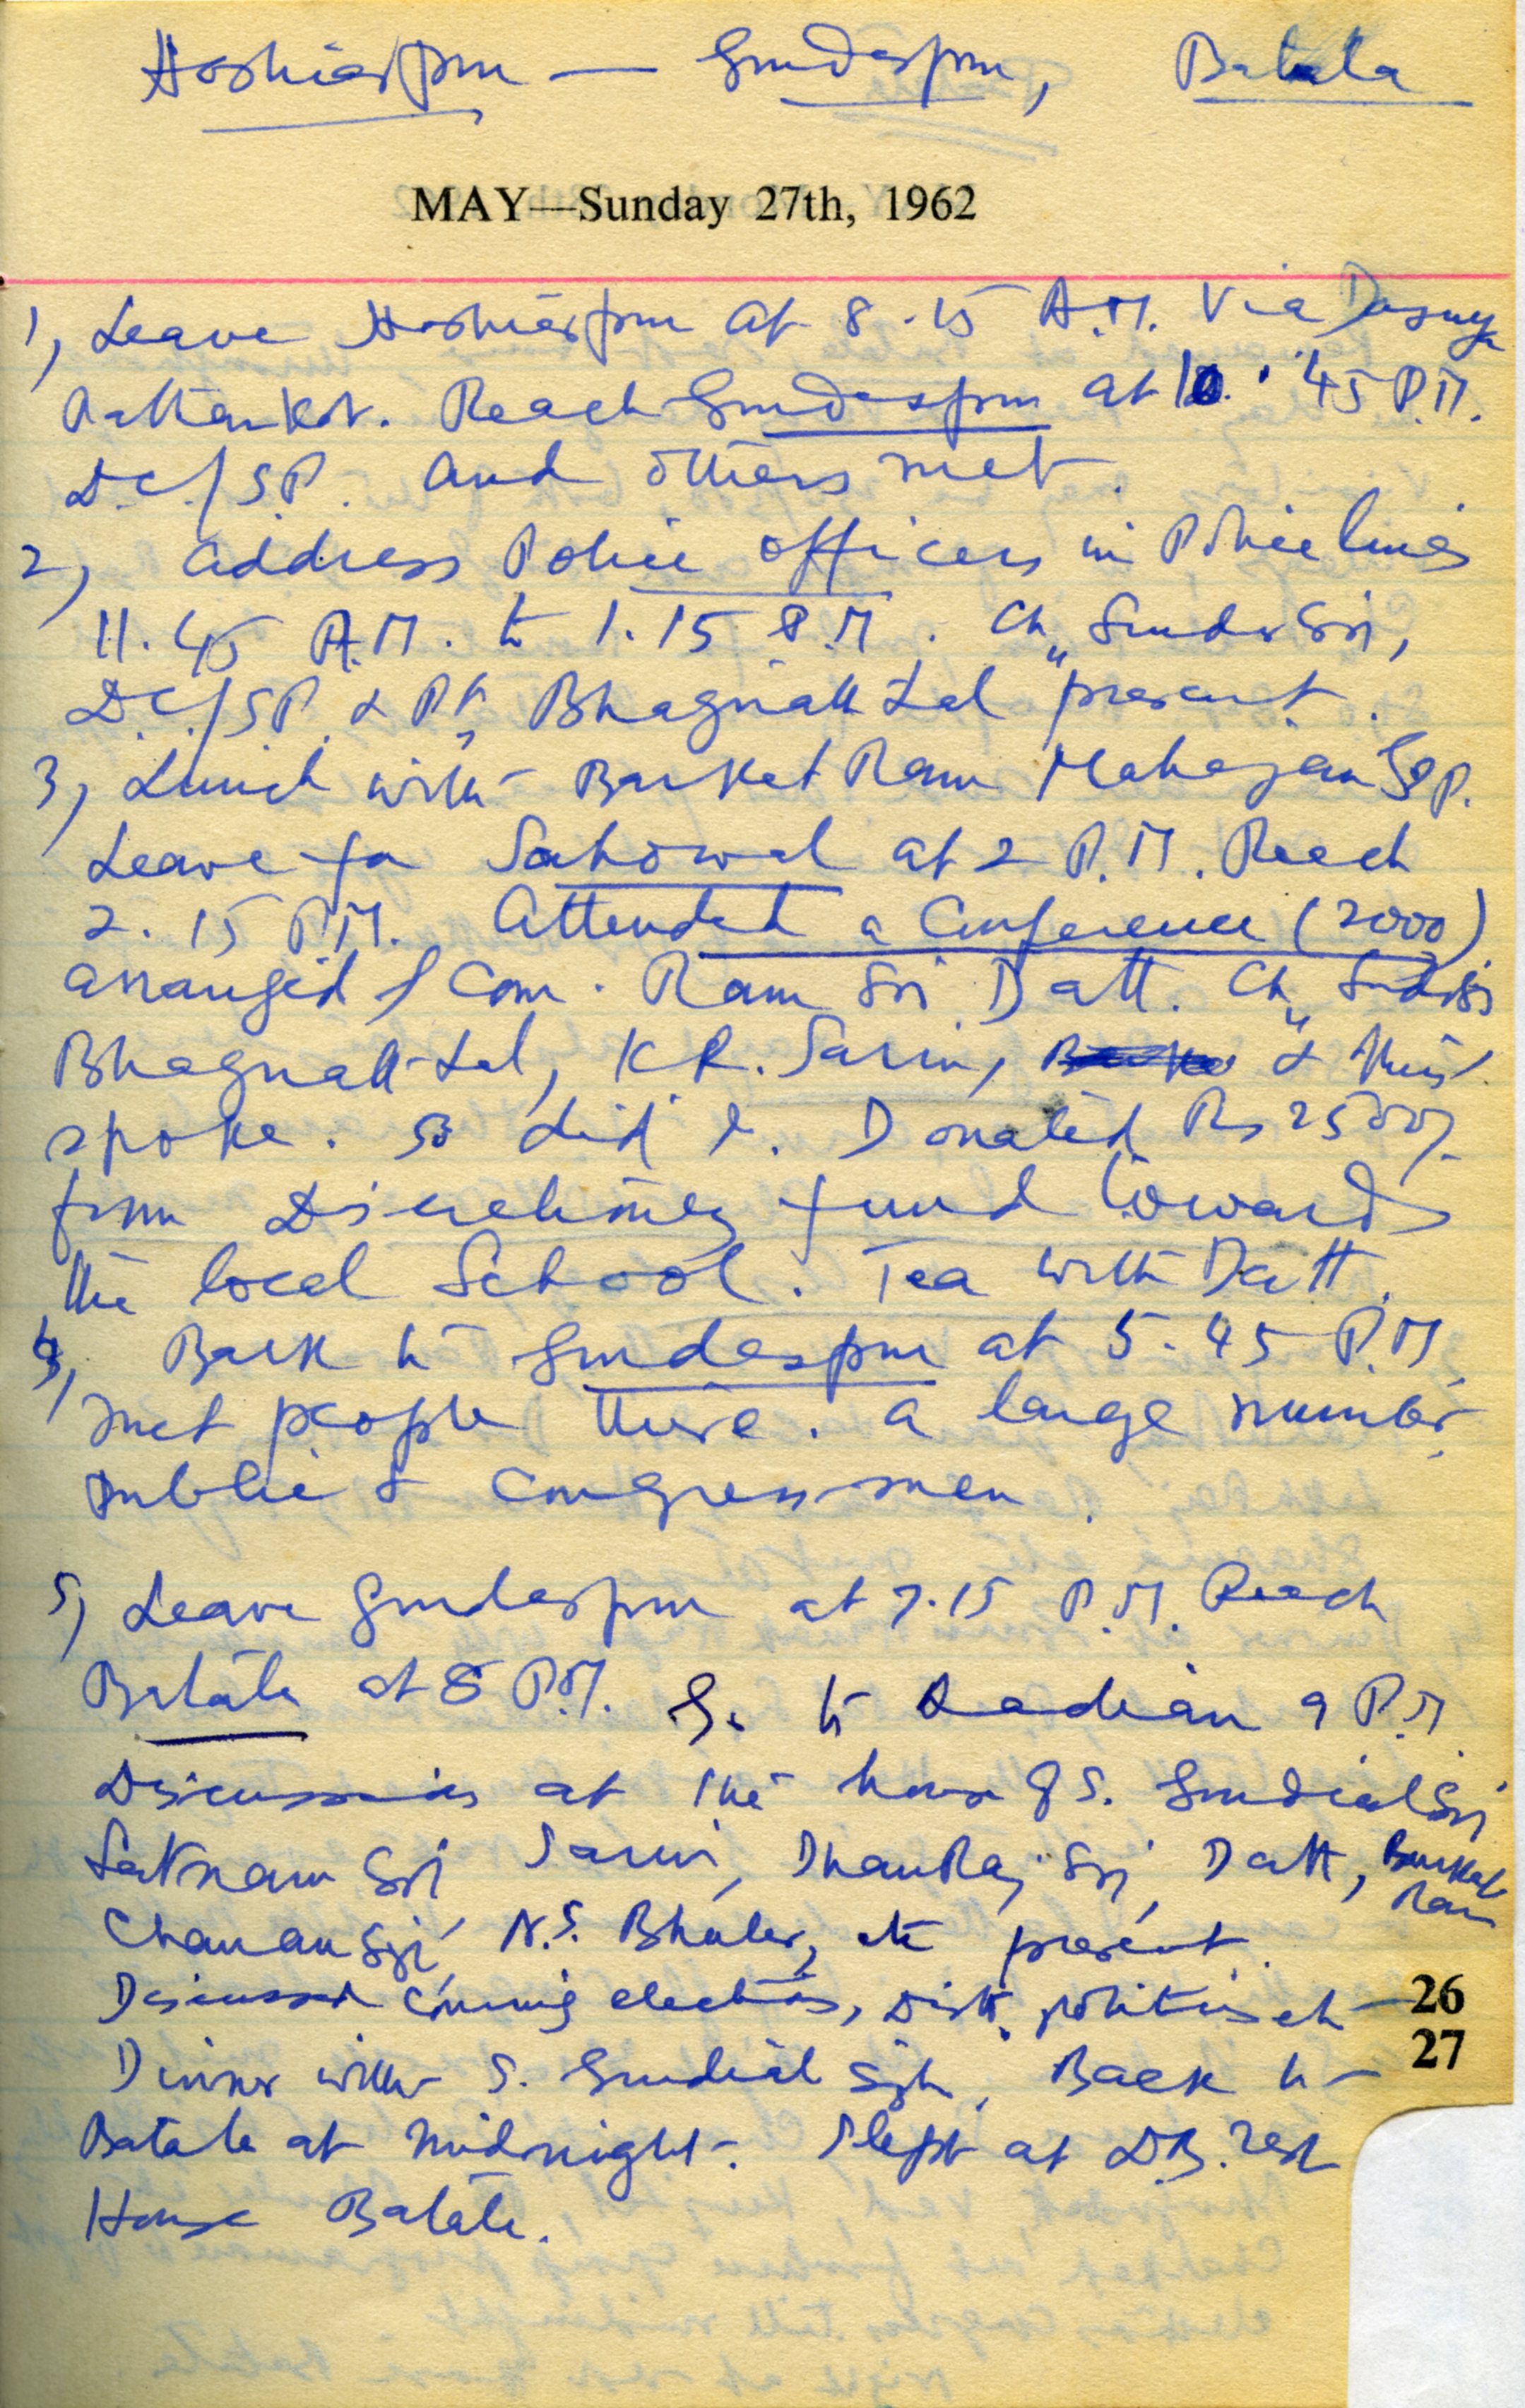 Hoshiarpur — Gurdaspur, Batala
MAY—Sunday 27th, 1962
1, Leave Hoshiarpur at 8.15 A.M. Via Dasuya
Pathankot. Reach Gurdaspur at 10.45 P.M.
D.C./S.P. and others met.
2, Address Police officers in Police lines
11.45 A.M. to 1.15 P.M. Ch,, Sunder Sri,
D.C./S.P. & Pt, Bhagnath Lal present.
3, Lunch with Barkat Ram Mahajan Sp.
Leave for Sahowal at 2 P.M. Reach
2.15 P.M. Attended a Conference (2000)
arranged by Com. Ram Sri Datt. Ch,,
Bhagnath Lal, K.R. Sarin, &
spoke. So did I. Donated Rs 2500/
from Discretionary fund towards
the local School. Tea with Datt.
4, Back to Gurdaspur at 5.45 P.M.
met people there. a large number
public & Congressmen.
5, Leave Gurdaspur at 7.15 P.M. Reach
Batala at 8 P.M. Go to Qadian 9 P.M.
Discussions at the house of S. Gurdial Sri
Satnam Sri Sarin, DhanRaj Sri, Datt, Barkat
Ram
Chanan Sri, N.S. etc present.
Discussed coming elections, Distt, politics etc
26
Dinner with S. Gurdial Sgh. Back to
27
Batala at midnight. Slept at D.B. rest
House Batala.